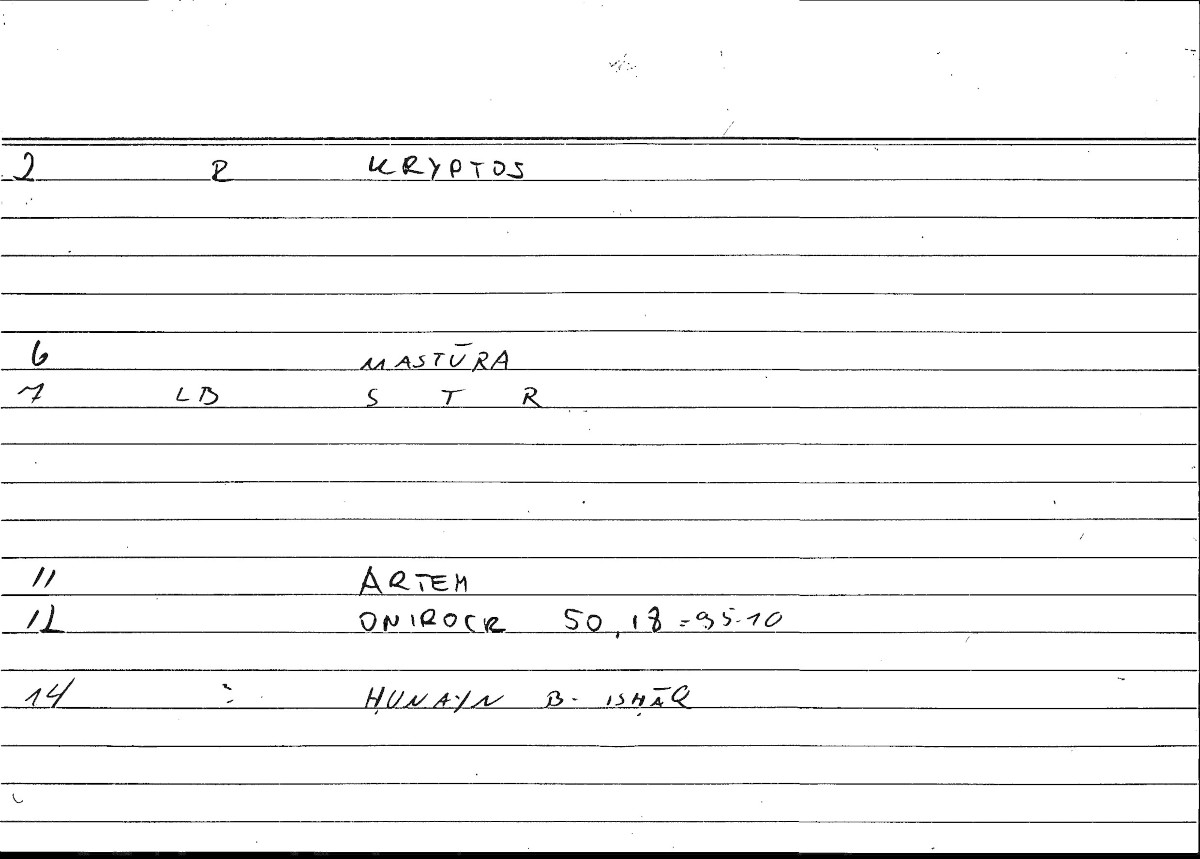 2 R KRYPTOS
6 MASTŪRA
7 LB S T R
11 ARTEM
12 ONIROCR 50,18=95.10
14 : ḤUNAYN B. ISḤĀQ